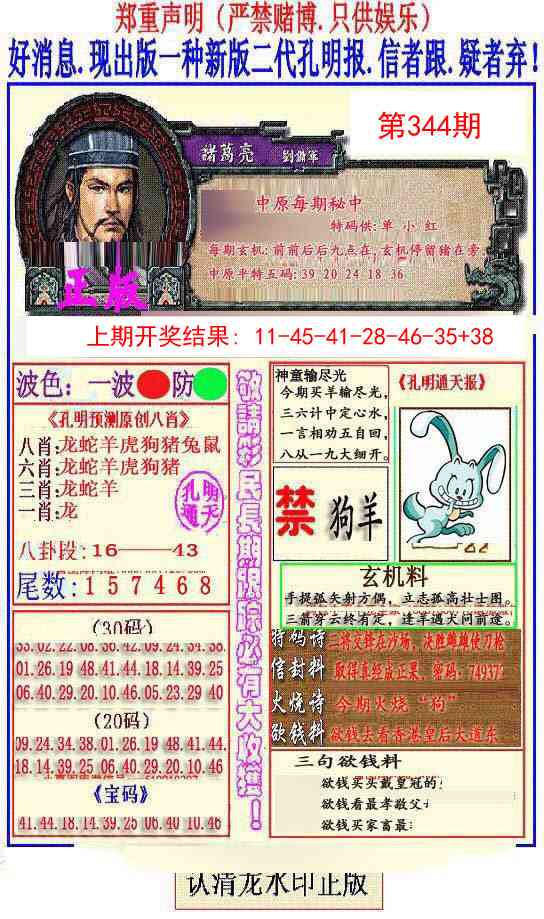 郑重声明（严禁赌博.只供娱乐）
好消息.现出版一种新版二代孔明报.信者跟.疑者弃!
第344期
諸葛亮
正版
中原每期秘中
特码供:单 小 红
每期玄机:前前后后九点在,玄机停留猪在旁
中原平特五码:39 20 24 18 36
上期开奖结果: 11-45-41-28-46-35+38
波色: 一波 防
《孔明预测原创八肖》
八肖:龙蛇羊虎狗猪兔鼠
六肖:龙蛇羊虎狗猪
三肖:龙蛇羊
一肖:龙
孔明
通天
八卦段:16——43
尾数:157468
(30码)
33.02.22.08.36.42.09.24.34.38
01.26.19.48.41.44.18.14.39.25
06.40.29.20.10.46.05.23.29.40
(20码)
09.24.34.38.01.26.19.48.41.44.
18.14.39.25.06.40.29.20.10.46
《宝码》
41.44.18.14.39.25.06.40.10.46
敬請彩民長期跟踪必有大收獲!
神童输尽光
今期买羊输尽光,
三六计中定心水,
一言相劝五自回,
八从一九大细开。
《孔明通天报》
禁 狗羊
玄机料
手提弧矢射方偶，立志孤高壮士图。
三箭身云终有定，逢羊遇火问前途。
特码诗 三将交锋在沙场，决胜雌雄使刀枪
信封料 取得真经成正果，密码: 749371
火烧诗 今期火烧“狗”
欲钱料 欲钱去看香港皇后大道东
三句欲钱料
欲钱买头戴皇冠的
欲钱看最孝敬父
欲钱买家畜最
认清龙水印正版